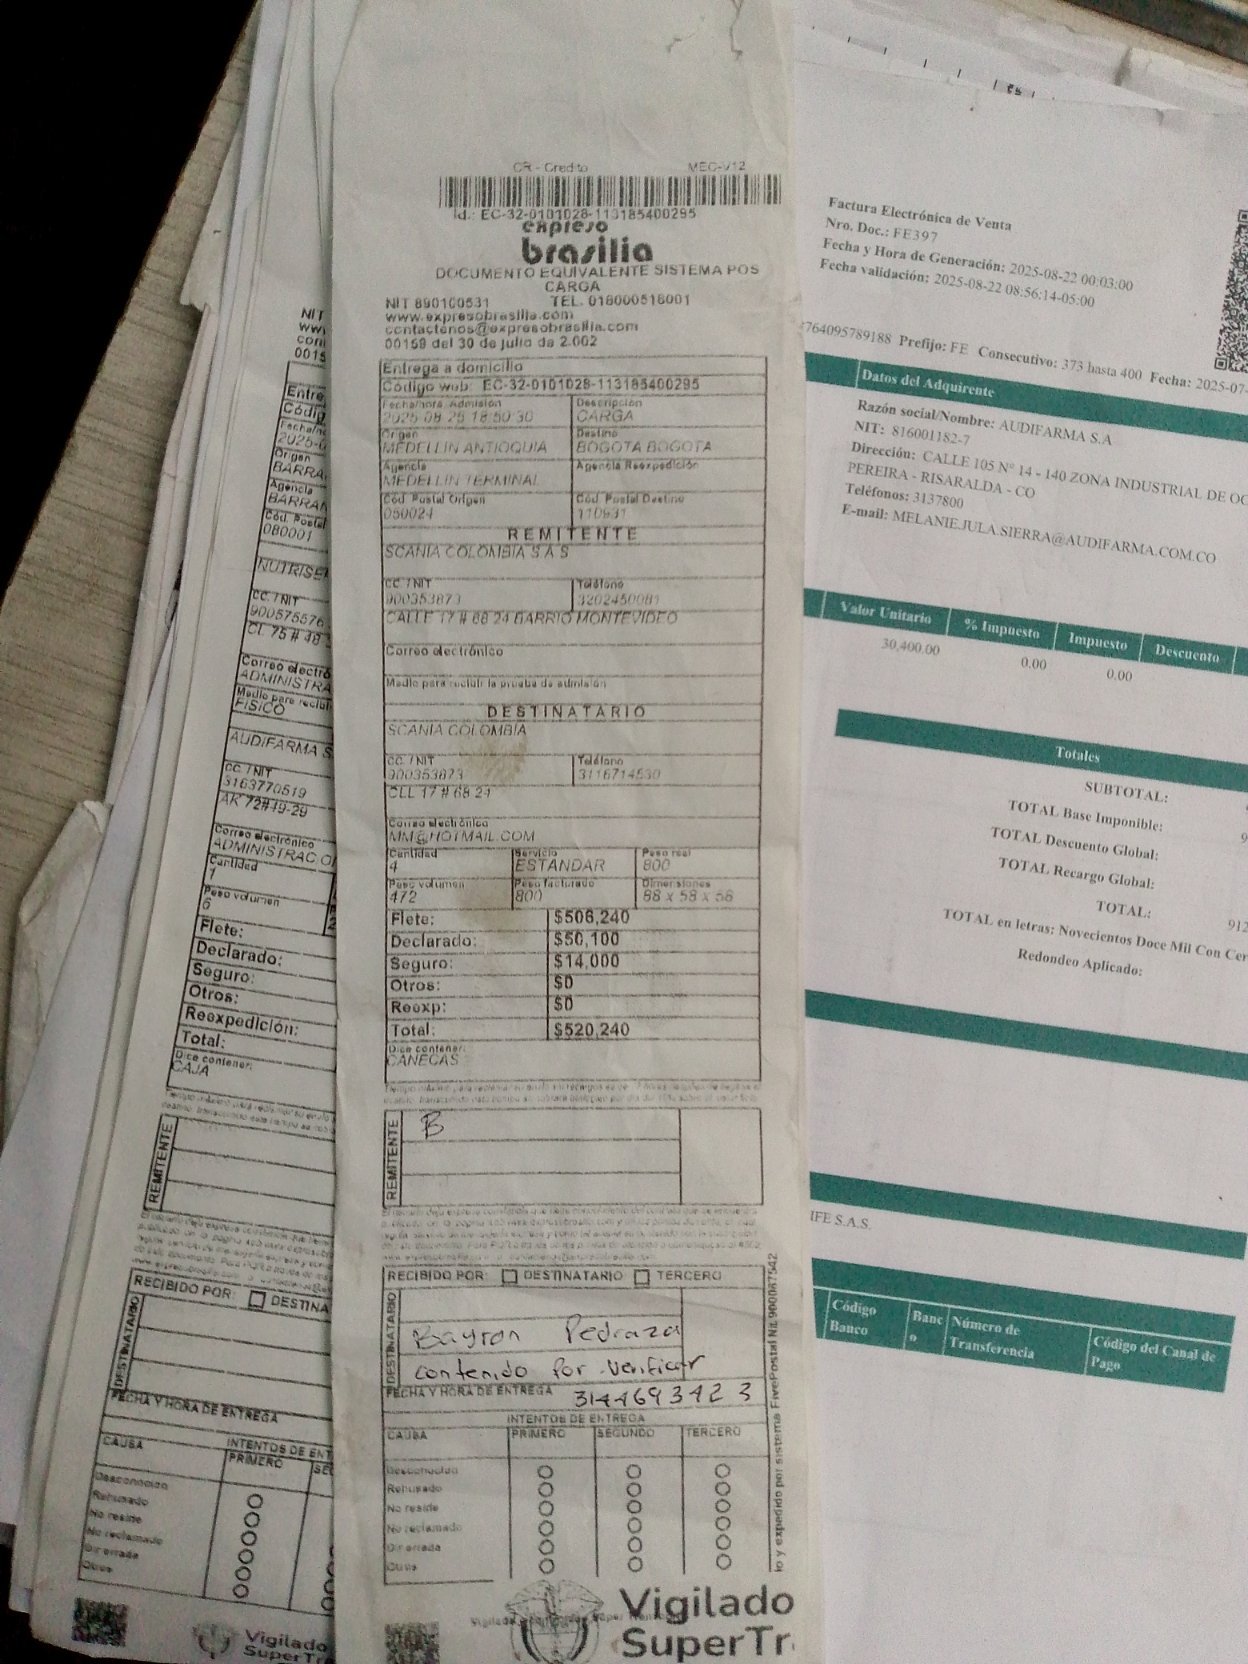 CR - Credito MEC-V12
Id.: EC-32-0101028-113185400295
expreso
brasilia
DOCUMENTO EQUIVALENTE SISTEMA POS
CARGA
NIT 890100531 TEL. 018000518001
www.expresobrasilia.com
contactenos@expresobrasilia.com
00159 del 30 de julio de 2.002
Entrega a domicilio
Código web: EC-32-0101028-113185400295
Fecha/hora Admisión Descripción
2025-08-25 18:50:30 CARGA
Origen Destino
MEDELLIN ANTIOQUIA BOGOTA BOGOTA
Agencia Agencia Reexpedición
MEDELLIN TERMINAL
Cód. Postal Origen Cód. Postal Destino
050024 110931
REMITENTE
SCANIA COLOMBIA S A S
CC. / NIT Teléfono
900353873 3202450081
CALLE 17 # 68 24 BARRIO MONTEVIDEO
Correo electrónico
Medio para recibir la prueba de admisión
DESTINATARIO
SCANIA COLOMBIA
CC. / NIT Teléfono
900353873 3116714530
CLL 17 # 68 24
Correo electrónico
MM@HOTMAIL.COM
Cantidad Servicio Peso real
4 ESTANDAR 800
Peso volumen Peso facturado Dimensiones
472 800 88 x 58 x 58
Flete: $506,240
Declarado: $50,100
Seguro: $14,000
Otros: $0
Reexp: $0
Total: $520,240
Dice contener:
CANECAS
REMITENTE
B
RECIBIDO POR: DESTINATARIO TERCERO
DESTINATARIO
Bayron Pedraza
contenido Por verificar
FECHA Y HORA DE ENTREGA 3144693423
INTENTOS DE ENTREGA
CAUSA PRIMERO SEGUNDO TERCERO
Desconocido
Rehusado
No reside
No reclamado
Dir errada
Otros
Vigilado
SuperTr
NIT
www
con
0015
Entre
Códig
Fecha/ho
2025-0
Origen
BARRA
Agencia
BARRAN
Cód. Postal
080001
NUTRISE
CC. / NIT
900575576
CL 75 # 48
Correo electró
ADMINISTRA
Medio para recibi
FISICO
AUDIFARMA S
CC. / NIT
3163770519
AK 72#49-29
Correo electrónico
ADMINISTRACIO
Cantidad
1
Peso volumen
6
Flete:
Declarado:
Seguro:
Otros:
Reexpedición:
Total:
Dice contener:
CAJA
REMITENTE
RECIBIDO POR: DESTINA
DESTINATARIO
FECHA Y HORA DE ENTREGA
INTENTOS DE ENT
CAUSA PRIMERO SE
Desconocido
Rehusado
No reside
No reclamado
Dir errada
Otros
Vigilado
SuperTr
Factura Electrónica de Venta
Nro. Doc.: FE397
Fecha y Hora de Generación: 2025-08-22 00:03:00
Fecha validación: 2025-08-22 08:56:14-05:00
764095789188 Prefijo: FE Consecutivo: 373 hasta 400 Fecha: 2025-07-
Datos del Adquirente
Razón social/Nombre: AUDIFARMA S.A
NIT: 816001182-7
Dirección: CALLE 105 N° 14 - 140 ZONA INDUSTRIAL DE OC
PEREIRA - RISARALDA - CO
Teléfonos: 3137800
E-mail: MELANIE.JULA.SIERRA@AUDIFARMA.COM.CO
Valor Unitario % Impuesto Impuesto Descuento
30,400.00 0.00 0.00
Totales
SUBTOTAL:
TOTAL Base Imponible: 9
TOTAL Descuento Global:
TOTAL Recargo Global:
TOTAL: 912
TOTAL en letras: Novecientos Doce Mil Con Cer
Redondeo Aplicado:
IFE S.A.S.
Código Banco Banc o Número de Transferencia Código del Canal de Pago